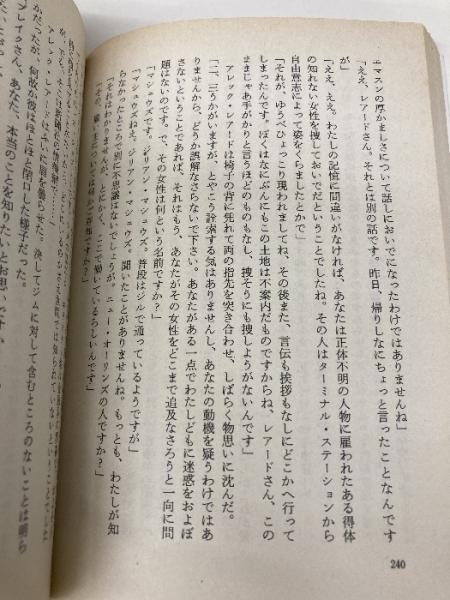 エマスンの厚かましさについて話しにおいでになったわけではありませんね」
「ええ、レアードさん。それとは別の話です。昨日、帰りしなにちょっと言ったことなんです
が」
「ええ、ええ。わたしの記憶に間違いがなければ、あなたは正体不明の人物に雇われたある得体
の知れない女性を捜しておいでだということでしたね。その人はターミナル・ステーションから
自由意志によって姿をくらましたとかで」
「それが、ゆうべひょっこり現われましてね、その後また、言伝も挨拶もなしにどこかへ行って
しまったんです。ぼくはなにぶんにもこの土地は不案内だものですからね、レアードさん、この
ままじゃあ手がかりと言うほどのものもなし、捜そうにも捜しようがないんです」
アレック・レアードは椅子の背に凭れて両の指先を突き合わせ、しばらく物思いに沈んだ。
「二、三うかがいますが、とやこう詮索する気はありませんし、あなたの動機を疑うわけではあ
りませんから、どうか誤解なさらないで下さい。あなたがある一点でわたしどもに迷惑をおよぼ
さないということであれば、それはもう、あなたがその女性をどこまで追及なさろうと一向に問
題はないのです。で、その女性は何という名前ですか？」
「マシュウズです。ジリアン・マシュウズ。普段はジルで通っているようですが」
「マシュウズねえ。ジリアン・マシュウズ。聞いたことがありませんね。もっとも、わたしが知
らなかったところで別に不思議はないでしょうが。ニュー・オーリンズの人ですか？」
「それはわかりません。とにかく、ここで働いているらしいんです」
アレック・レアードはふいに眉を曇らせた。決してジムに対して含むところのないことは明ら
かだったが、何故か彼はほとほと閉口した様子だった。
ブレイクさん、あなた、本当のことを知りたいとお思いですか
240